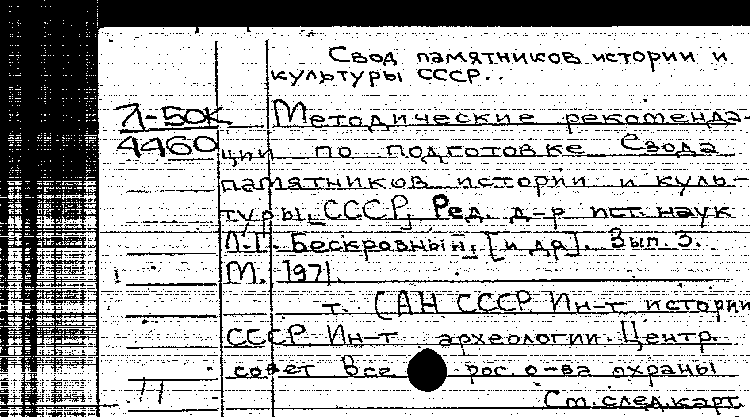 Свод памятников истории и
культуры СССР.
Л-50к Методические рекоменда-
4460 ции по подготовке Свода
памятников истории и куль-
туры СССР, Ред. д-р ист. наук
Л.Г. Бескровный, [и др]. Вып. 3.
М. 1971.
т. (АН СССР Ин-т истории
СССР. Ин-т археологии. Центр.
совет Все рос. о-ва охраны
См. след. карт.